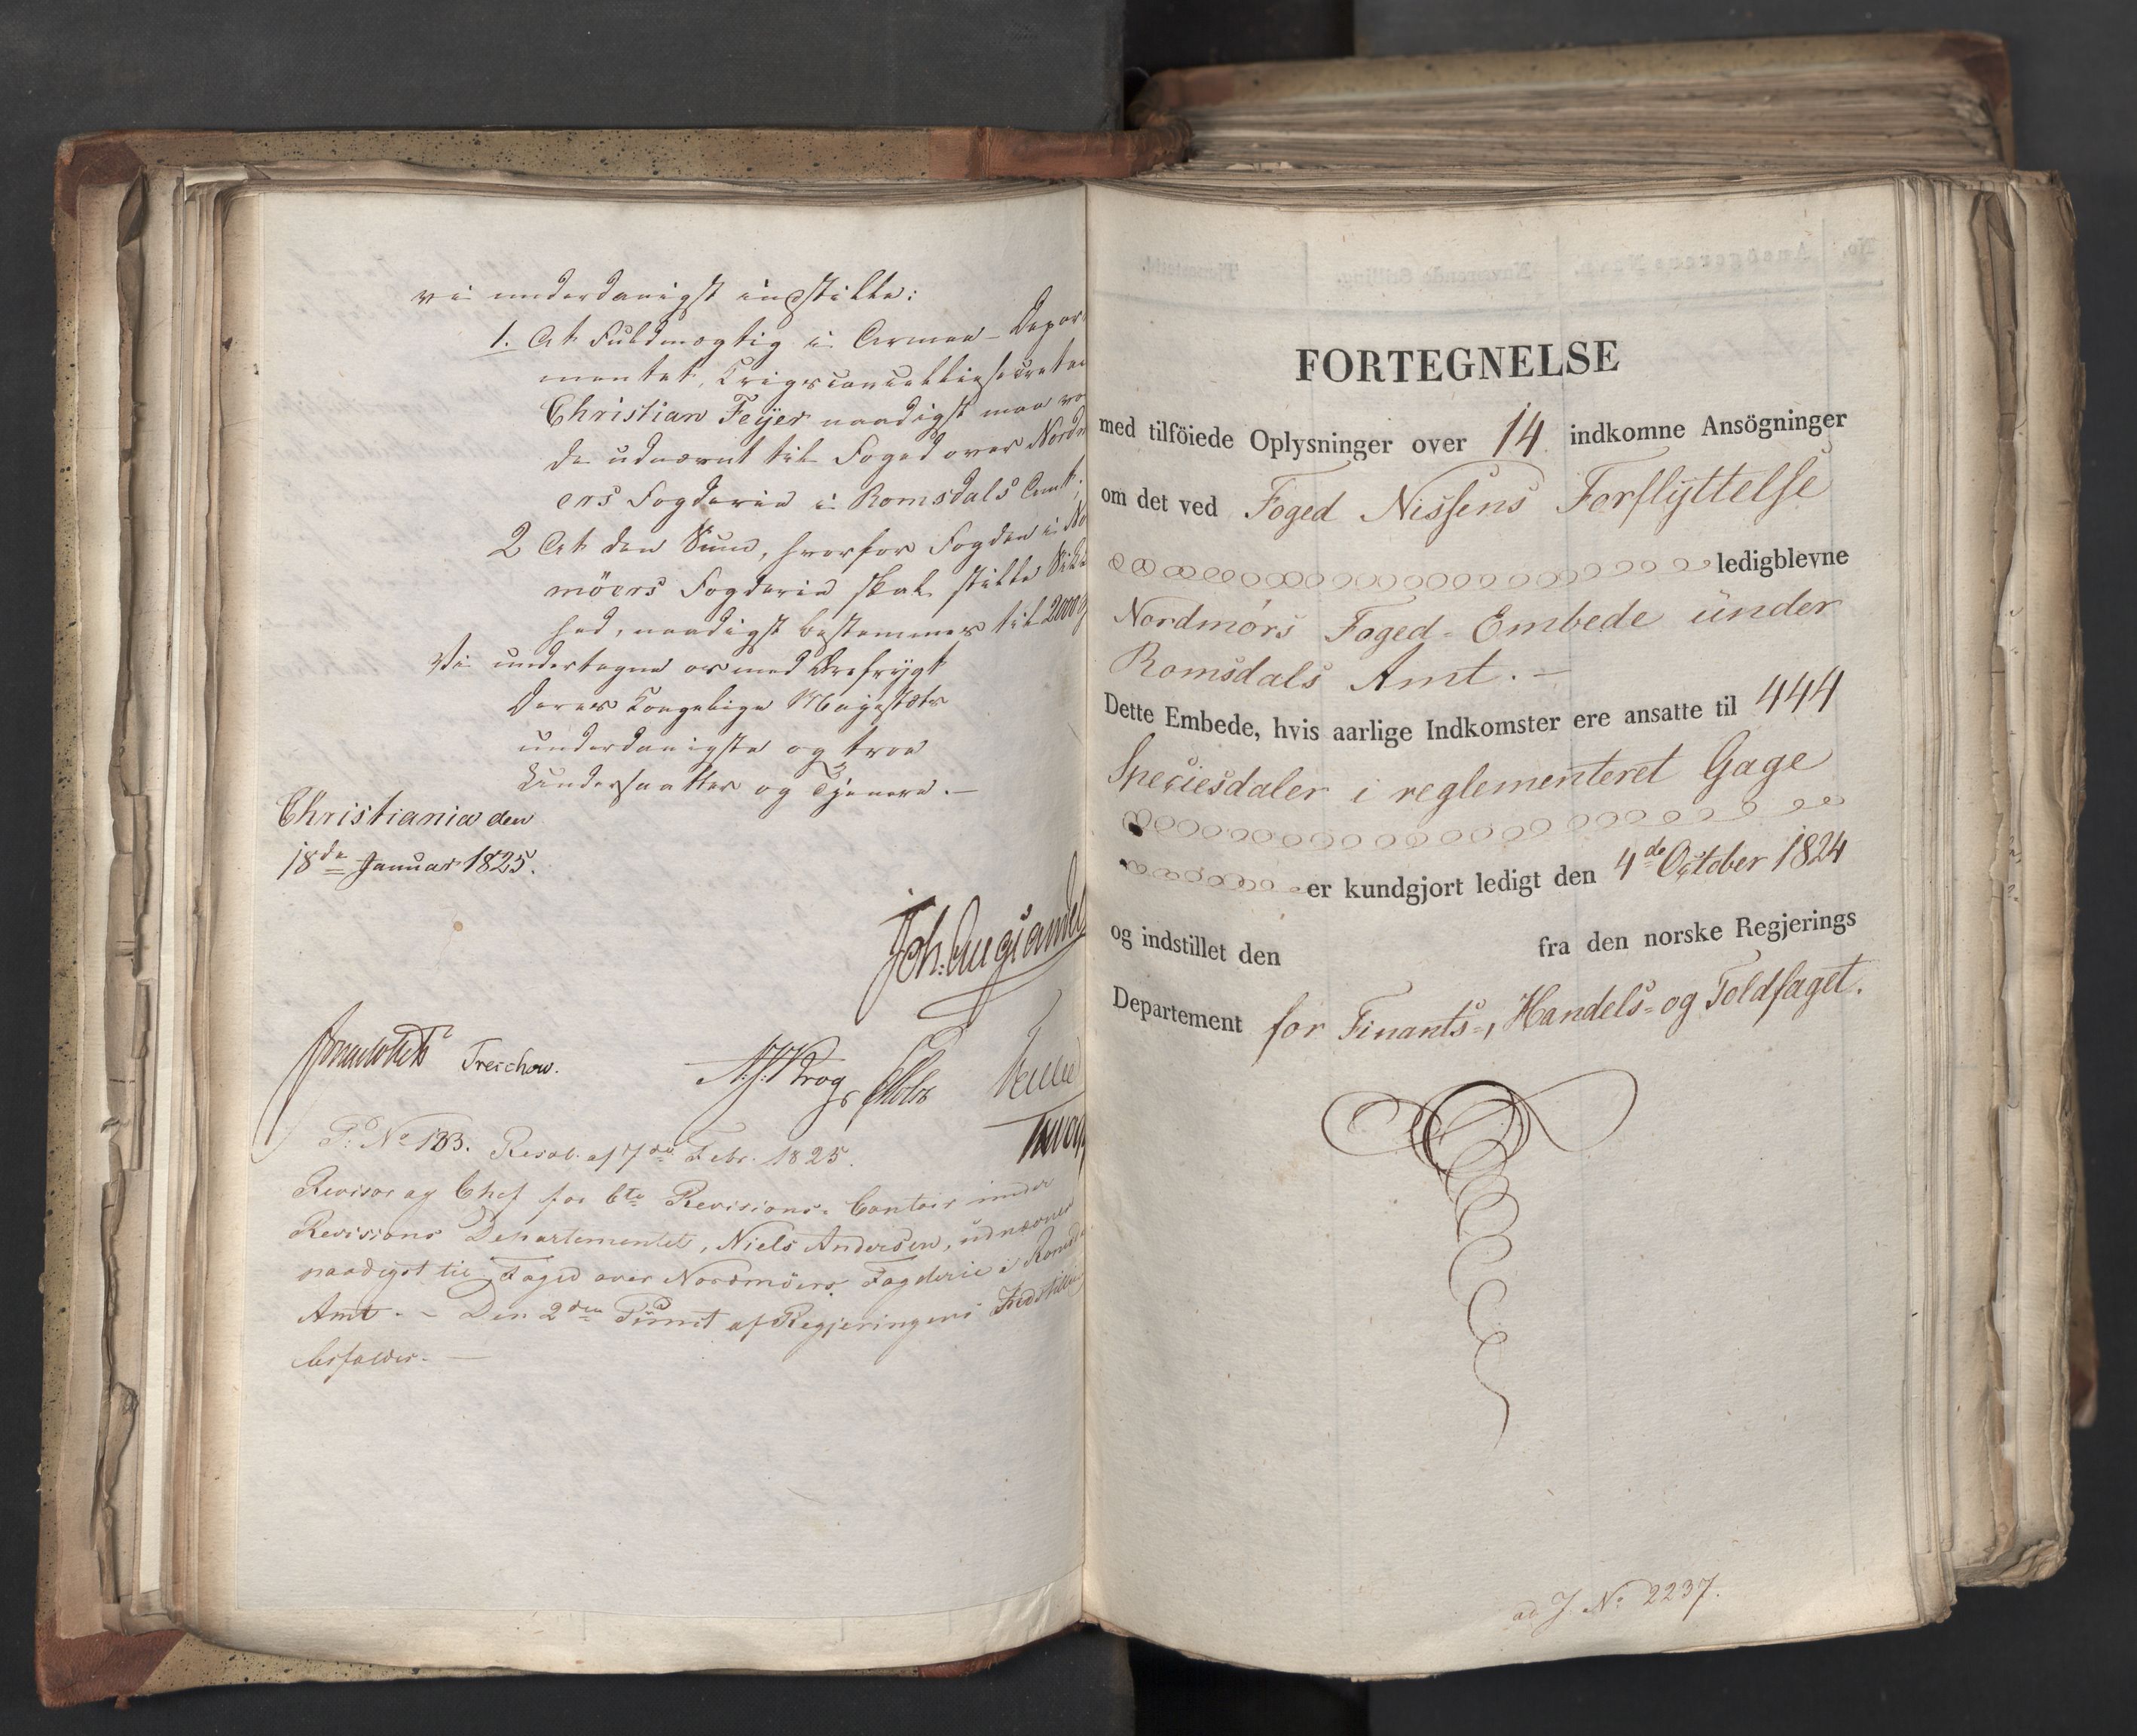 vi underdanigst indstille:
1. At Fuldmægtig i Armee-Depar
mentet, Krigscancelliesecretai
Christian Feÿer naadigst maa vo
de udnævnt til Foged over Nordm
ørs Fogderie i Romsdals Amt;
2 At den Sum, hvorfor Fogden i No
möers Fogderie skal stille Sikke
hed, naadigst bestemmes til 2000
Vi undertegne os med Ærefrygt
Deres Kongelige Majestæts
underdanigste og troe
Undersaatter og Tjenere.-
Christiania den
18de Januar 1825.
Treschow.
P: No 133. Resol. af 7de Febr. 1825.
Revisor og Chef for 6te Revisions-Contoir under
Revisions Departementet, Niels Andersen, udnævnes
naadigst til Foged over Nordmöers Fogderie i Romsda
Amt. - Den 2den Punct af Regjeringens Indstilli
bifaldes. -
FORTEGNELSE
med tilföiede Oplysninger over 14 indkomne Ansögninger
om det ved Foged Nissens Forflÿttelse
ledigblevne
Nordmørs Foged-Embede under
Romsdals Amt.-
Dette Embede, hvis aarlige Indkomster ere ansatte til 444
Speciesdaler i reglementeret Gage
er kundgjort ledigt den 4de October 1824
og indstillet den fra den norske Regjerings
Departement for Finants-, Handels- og Toldfaget.
ad J. No 2237.